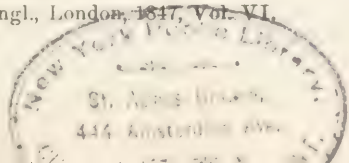 ngl., London, 1847, Vol. VI,
New York Public Library,
St. Agnes Branch,
444 Amsterdam Ave.